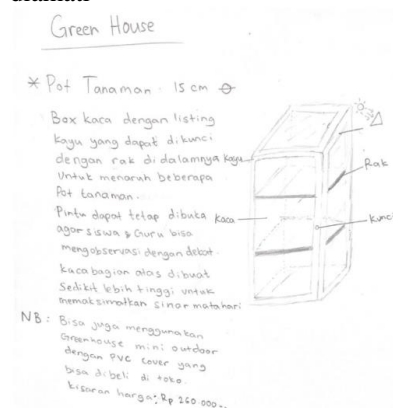 Green House
* Pot Tanaman. 15 cm
Box kaca dengan listing
kayu yang dapat dikunci
dengan rak di dalamnya
Untuk menaruh beberapa
Pot tanaman.
Pintu dapat tetap dibuka
agar siswa & Guru bisa
mengobservasi dengan dekat.
kaca bagian atas dibuat
Sedikit lebih tinggi untuk
memaksimalkan sinar matahari
kayu
Rak
kaca
kunci
NB: Bisa juga menggunakan
Greenhouse mini outdoor
dengan PVC cover yang
bisa dibeli di toko.
kisaran harga: Rp 260.000,-